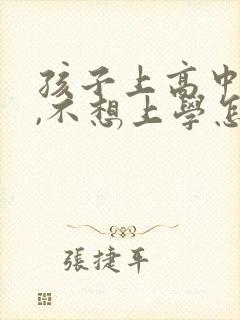 孩子上高中
,不想上學怎
張捷平